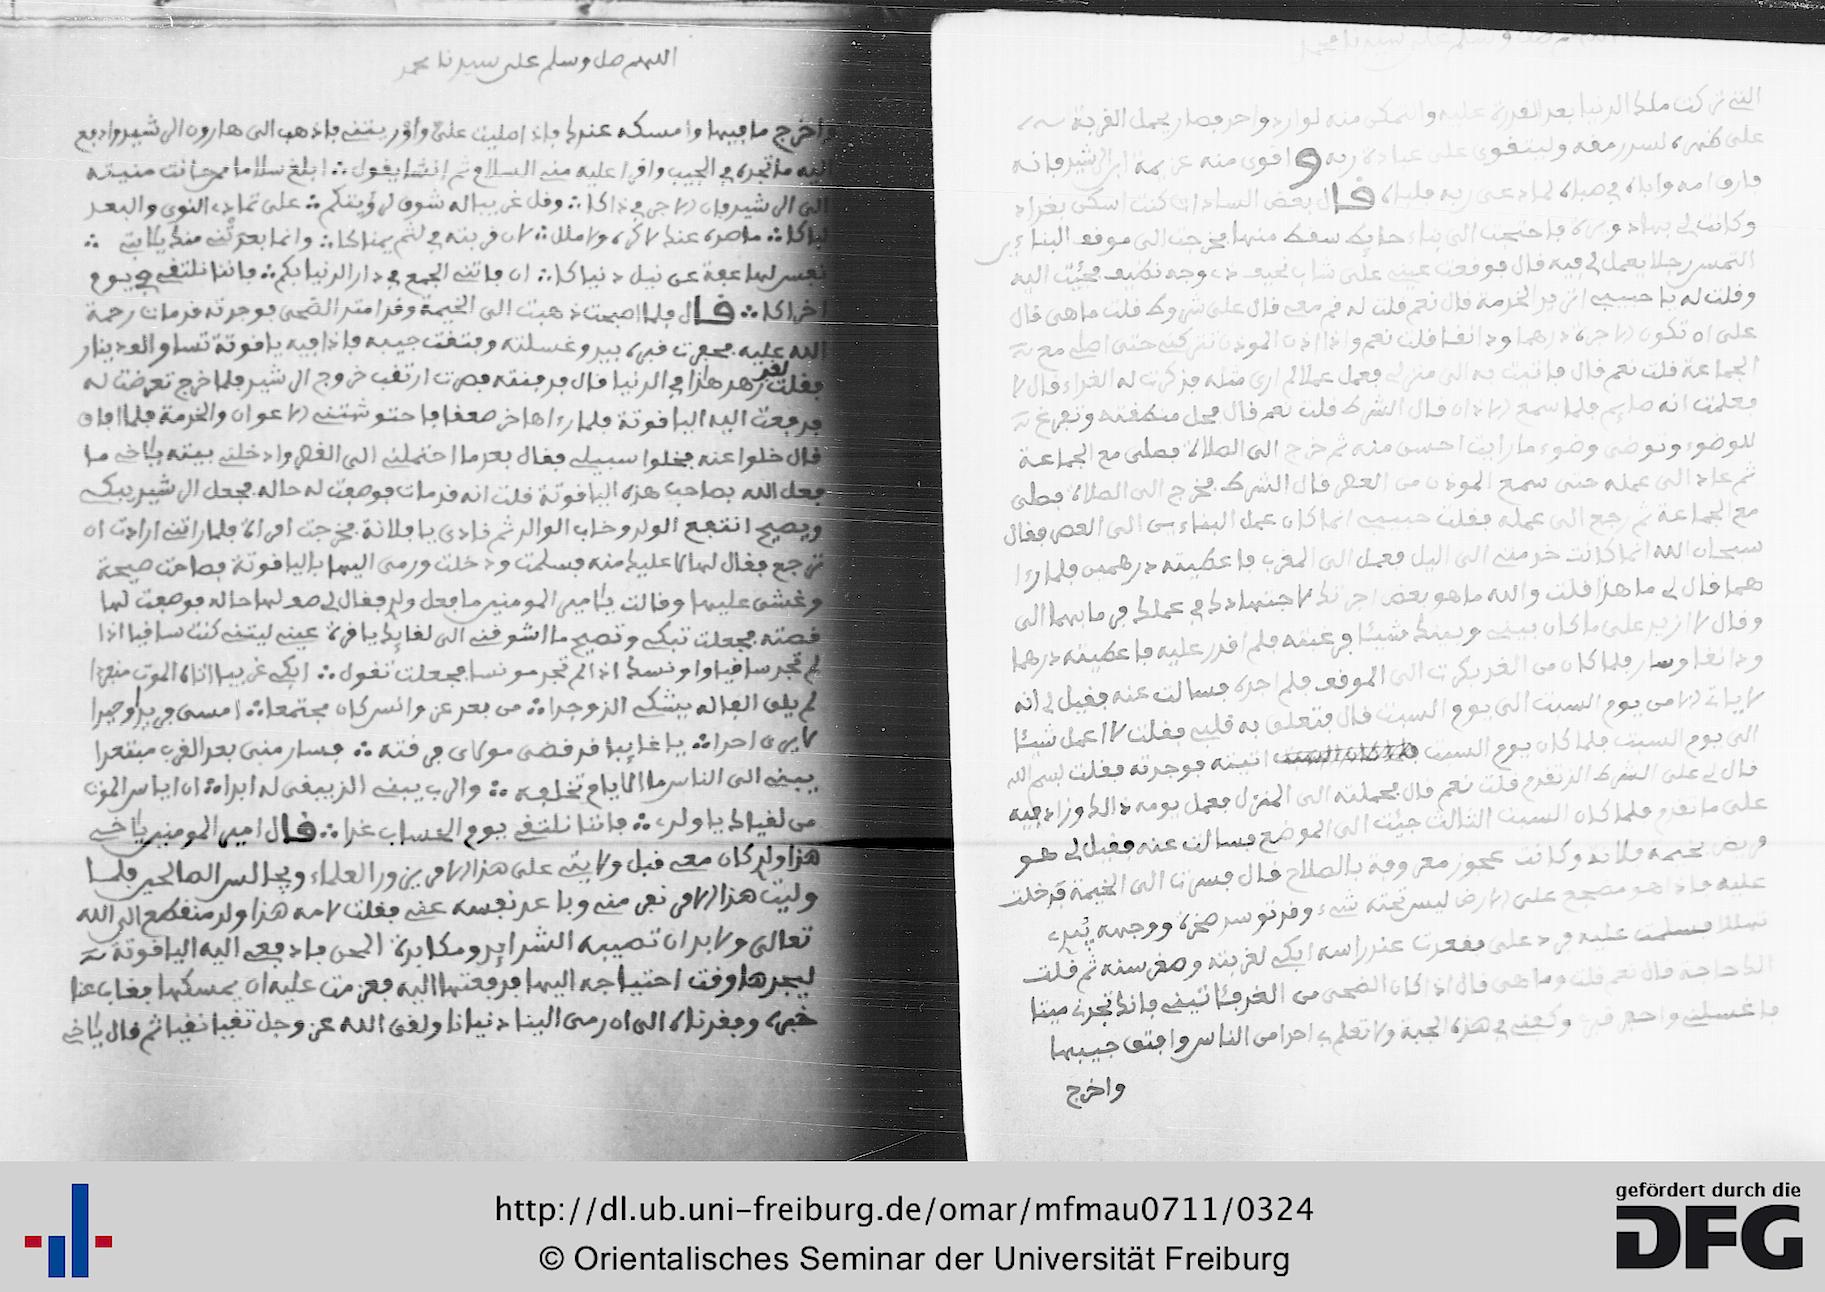 اللهم صل وسلم على سيدنا محمد
التي تركت ملك الدنيا بعد القدرة عليه والتمكن منه لوارد واحد فصار يحمل القربة
على ظهره لسد رمقه وليتقوى على عبادة ربه واقوى منه عزيمة ابن الرشيد فانه
فارق امه واباه في صباه لما دعي ربه فلباه قال بعض السادات كنت اسكن بغداد
وكانت لي بها دويرة فاحتجت الى بناء حايط سقط منها فخرجت الى موقف البناء
التمس رجلا يعمل لي فيه قال فوقعت عيني على شاب نحيف ذي وجه نظيف فجئت اليه
وقلت له يا حبيبي اتريد الخدمة قال نعم قلت له قم معي قال على شروط قلت ما هي قال
على ان تكون الاجرة درهما ودانقا قلت نعم واذا اذن الموذن تتركني حتى اصلي مع
الجماعة قلت نعم قال فاتيت به الى منزلي فعمل عملا لم ار مثله فذكرت له الغداء قال لا
فعلمت انه صايم فلما سمع الاذان قال الشرط قلت نعم قال فحل منطقته وتفرغ
للوضوء وتوضى وضوء ما رايت احسن منه ثم خرج الى الصلاة فصلى مع الجماعة
ثم عاد الى عمله حتى سمع الموذن من العصر قال الشرط فخرج الى الصلاة فصلى
مع الجماعة ثم رجع الى عمله فقلت حبيبي انما كان عمل البناءين الى العصر فقال
سبحان الله انما كانت خدمتي الى اليل فعمل الى المغرب فاعطيته درهمين فلما رءا
هما قال لي ما هذا قلت والله ما هو بعض اجرتك لاجتهادك في عملك فرمى بهما الى
وقال لا ازيد على ما كان بيني وبينك شيئا فرغبته فلم اقدر عليه فاعطيته درهما
ودانقا وسار فلما كان من الغد بكرت الى الموقف فلم اجده فسالت عنه فقيل لي انه
لا ياتي الا من يوم السبت الى يوم السبت قال فتعلق به قلبي فقلت لا اعمل شيئا
الى يوم السبت فلما كان يوم السبت اتيته فوجدته فقلت بسم الله
قال لي على الشرط الذي تقدم قلت نعم قال فحملته الى المنزل فعمل يومه ذالك وزاد فيه
على ما تقدم فلما كان السبت الثالث جيئت الى الموضع فسالت عنه فقيل لي هو
مريض بخيمة فلانة وكانت عجوز معروفة بالصلاح قال فسرت الى الخيمة فدخلت
عليه فاذا هو مضجع على الارض ليس تحته شيء وقد توسد صخرة ووجهه
تهللا فسلمت عليه فرد علي فقعدت عند راسه ابكي لغربته وصغر سنه ثم قلت
الك حاجة قال نعم قلت وما هي قال اذا كان الضحى من الغد فتاتيني فانك تجدني ميتا
فاغسلني واحفر قبري وكفني في هذه الجبة ولا تعلم بي احدا من الناس وافتق جيبها
واخرج
اللهم صل وسلم على سيدنا محمد
واخرج ما فيها وامسكه عندك فاذا صليت علي وواريتني فاذهب الى هارون الرشيد وادفع
اليه ما تجده في الجيب واقرا عليه مني السلام ثم انشا يقول ∴ ابلغ سلاما ممن حانت منيته
الى الرشيد فان الاجر في ذاكا ∴ وقل غريب له شوق لرؤيتكم ∴ على تمادي النوى والبعد
لباكا ∴ ما صده عنك لا كره ولا ملل ∴ لان قربته في لثم يمناكا ∴ وانما بعدتني عنك يا ابتي ∴
نفس لها عفة عن نيل دنياكا ∴ ان فاتني الجمع في دار الدنيا بكم ∴ فاننا نلتقي في يوم
اخراكا ∴ قال فلما اصبحت ذهبت الى الخيمة وقد امتد الضحى فوجدته قد مات رحمة
الله عليه فحفرت قبره بيدي وغسلته وفتقت جيبه فاذا فيه ياقوتة تساوي الف دينار
فقلت لقد زهد هذا في الدنيا قال فدفنته فصرت ارتقب خروج الرشيد فلما خرج تعرضت له
فدفعت اليه الياقوتة فلما رءاها خر صعقا فاحتوشتني الاعوان والخدمة فلما افاق
قال خلوا عنه فخلوا سبيلي فقال بعد ما احتملني الى القصر وادخلني بيته يا اخي ما
فعل الله بصاحب هذه الياقوتة قلت انه قد مات فوصفت له حاله فجعل الرشيد يبكي
ويصيح انتفع الولد وخاب الوالد ثم نادى يا فلانة فخرجت امراة فلما راتني ارادت ان
ترجع فقال لها لا عليك منه فسلمت ودخلت ورمى اليها بالياقوتة فصاحت صيحة
وغشي عليها وقالت يا امير المومنين ما فعل ولدي فقال لي صف لها حاله فوصفت لها
قصته فجعلت تبكي وتصيح ما اشوقني الى لقايك يا قرة عيني ليتني كنت ساقيا اذا
لم تجد ساقيا وانسك اذا لم تجد مونسا فجعلت تقول ∴ ابكي غريبا اتاه الموت منفردا
لم يلق الفا له يشكي الذي وجدا ∴ من بعد عز وانس كان مجتمعا ∴ امسى فريدا وحيدا
لا يرى احدا ∴ يا غايبا قد قضى مولاي فرقته ∴ فصار مني بعد القرب مبتعدا
يبني الى الناس ما الايام تخلفه ∴ والرب يبقي الذي يبقى له ابدا ∴ ان ايس الموت
من لقياك يا ولدي ∴ فاننا نلتقي يوم الحساب غدا ∴ قال امير المومنين يا اخي
هذا ولدي كان معي قبل ولايتي على هذا الامر يزور العلماء ويجالس الصالحين فلما
وليت هذا الامر نفر مني وباعد نفسه عني فقلت لامه هذا ولد منقطع الى الله
تعالى ولا بد ان تصيبه الشدايد ومكابدة المحن فادفعي اليه الياقوتة
ليجدها وقت احتياجه اليها فدفعتها اليه فعزمت عليه ان يمسكها فغاب عنا
خبره وفقدناه الى ان رمى الينا دنيانا ولقي الله عز وجل تقيا نقيا ثم قال يا اخي
http://dl.ub.uni-freiburg.de/omar/mfmau0711/0324
© Orientalisches Seminar der Universität Freiburg
gefördert durch die
DFG